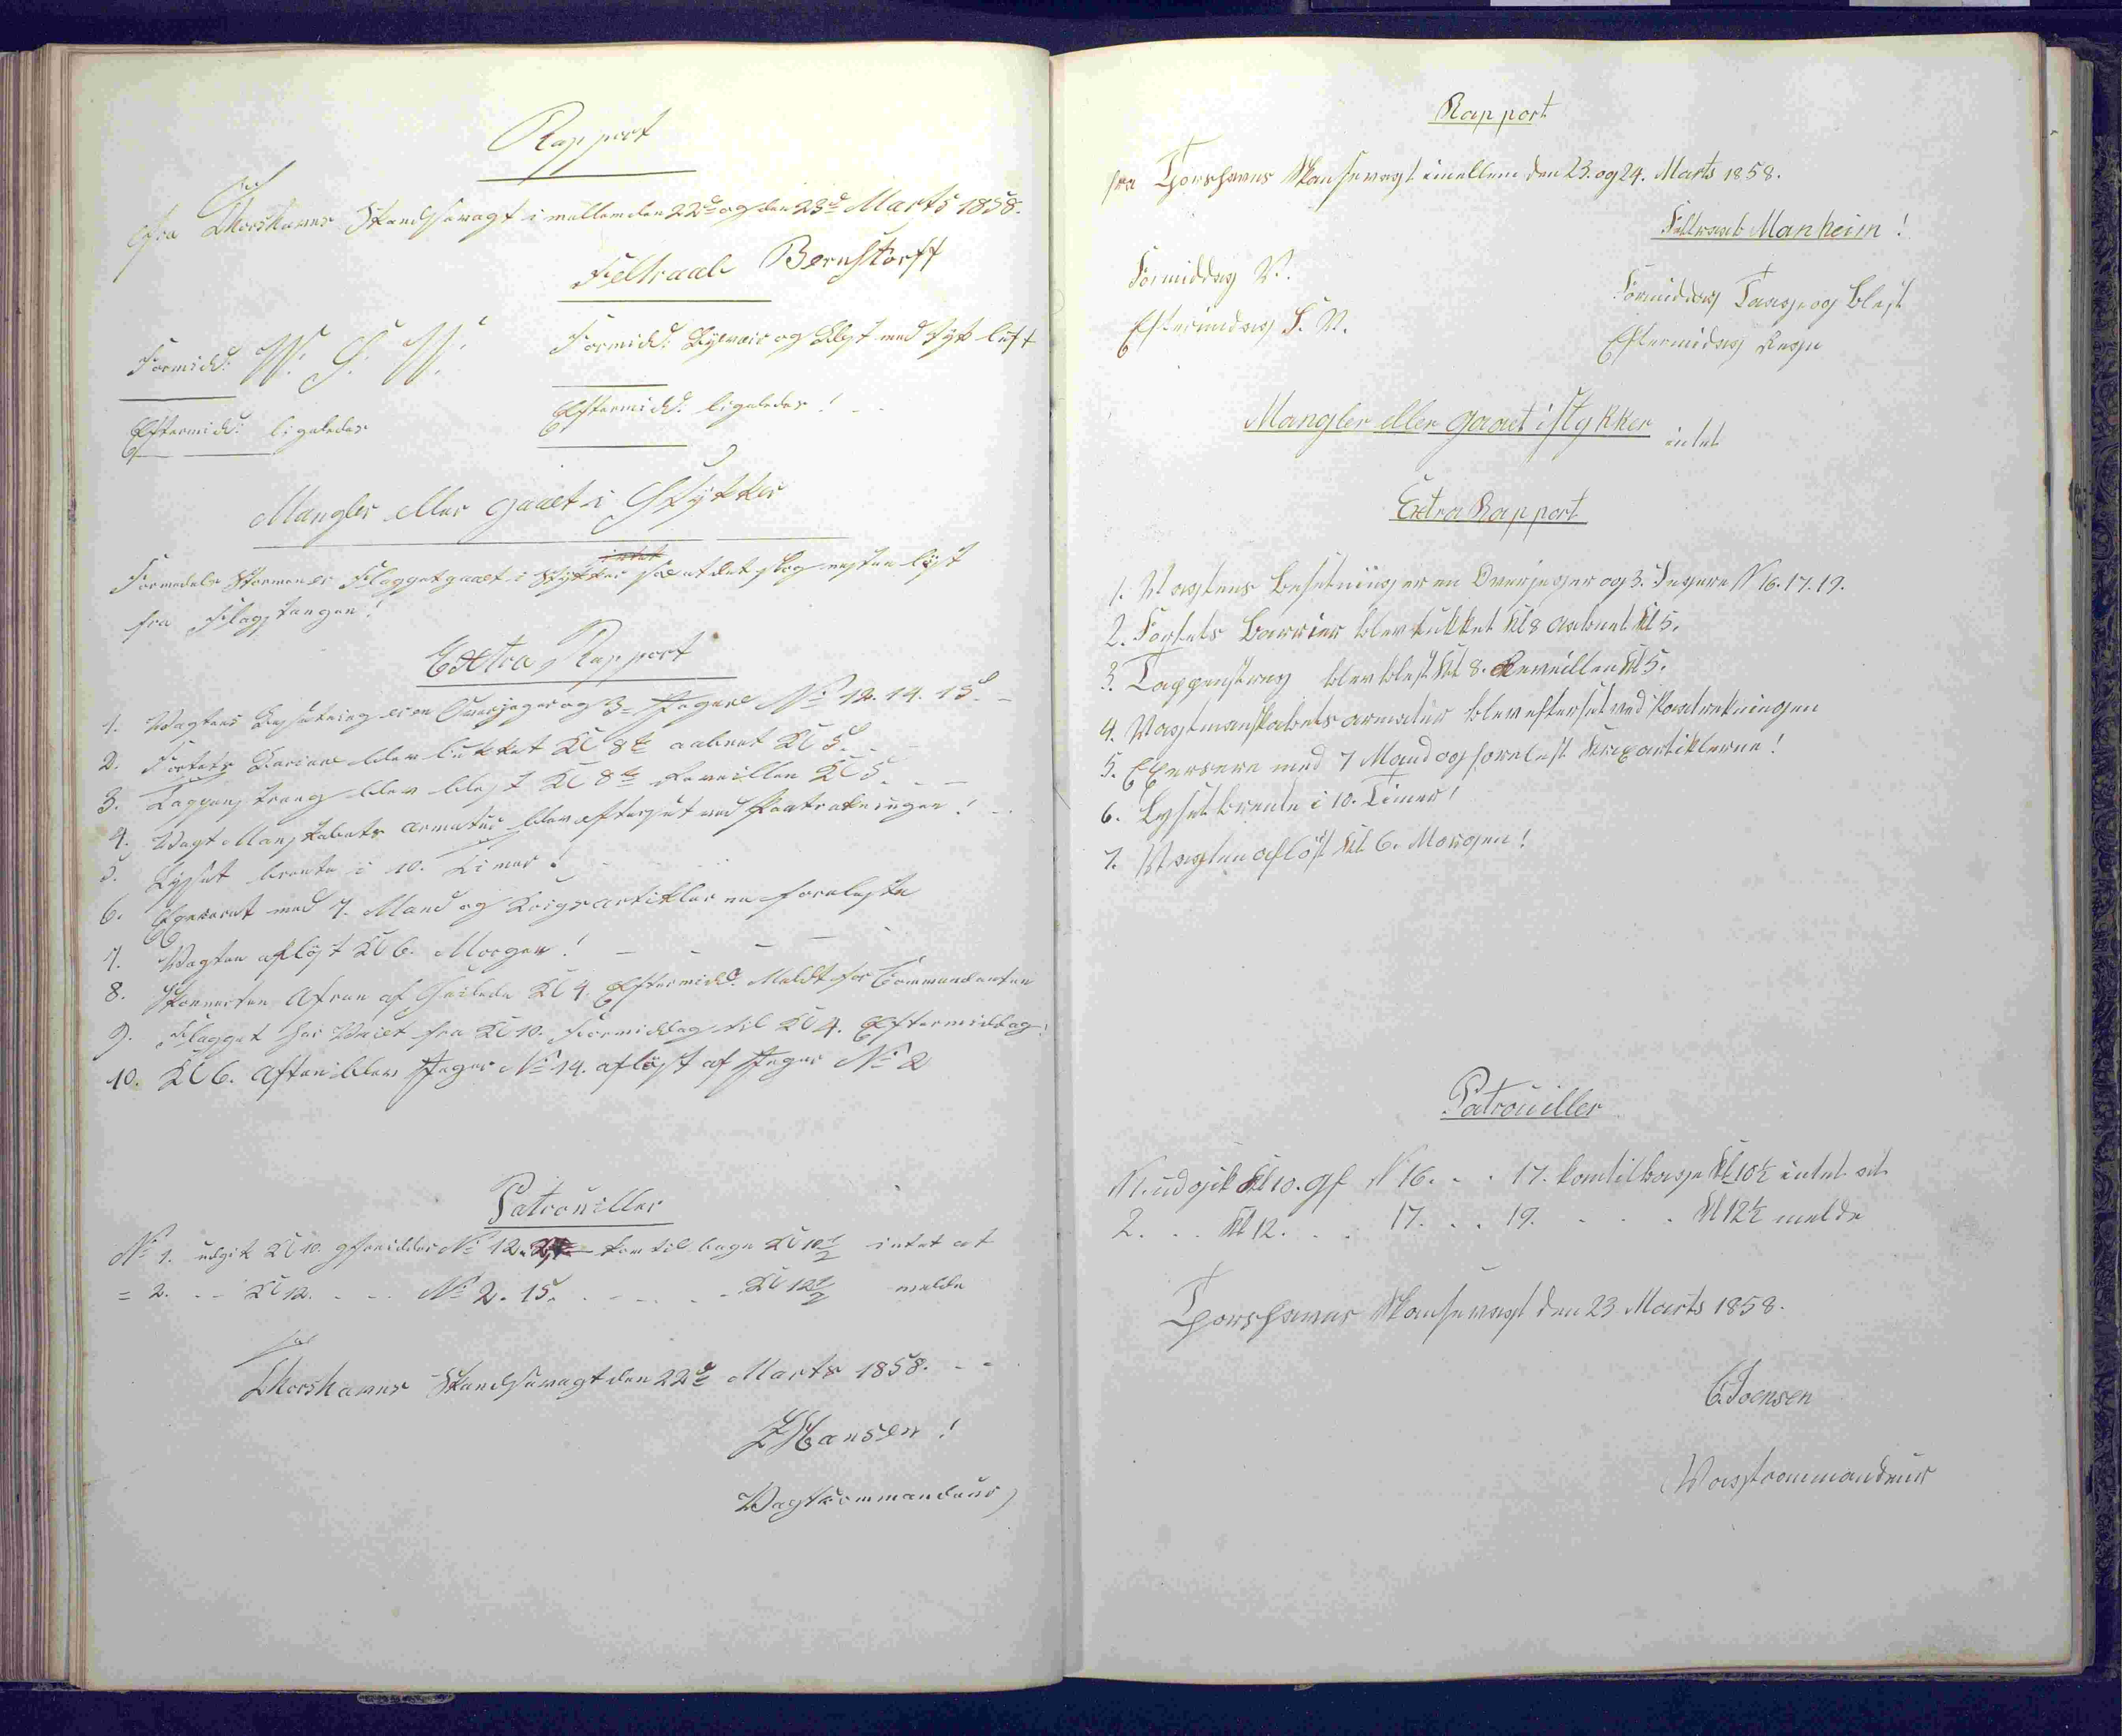 Rapport
fra Thorshavns Skandsevagt imellem den 22de og den 23de Marts 1858.
Feltraab Bernstorff
Formidd: W. S. W. Formidd: Byeveir og Blæst med tyk luft
Eftermidd: ligeledes Eftermidd: ligeledes!
Mangler eller gaaet i Stykker
Formedels Stormen er Flagget gaaet i Stykker saa at det slog næsten løst
fra Flagstangen!
Extra Rapport
1. Vagtens Besætning er en Overjæger og 3 Jægere No 12. 14. 15.
2. Fortets Bariere blev lukket Kl 8te aabnet Kl 5.
3. Tappenstreng blev blæst Kl 8te Reveillen Kl 5.
4. Vagt Manskabets armatur blev efterset ved Paatrækningen!
5. Lyset brente i 10. Timer!
6. Exerseret med 7. Mand og Krigsartiklerne forelæste
7. Vagten afløst Kl 6. Morgen!
8. Skonnerten Afrun af Seilede Kl 4 Eftermidd. Meldt for Commandanten
9. Flagget har Vaiet fra Kl 10. Formiddag til Kl 4. Eftermiddag!
10. Kl 6. Aften blev Jæger No 14. afløst af Jæger No 2
Patrouiller
No 1. udgik Kl 10. gefreider No 12. kom tilbage Kl 10½ intet at
= 2. - - Kl 12. - - No 2. 15. - - - - Kl 12½ melde
Thorshavns Skandsevagt den 22de Marts 1858.
Hansen!
Vagtkommandeur
Rapport
fra Thorshavns Skansevagt imellem den 23. og 24. Marts 1858.
Feltraab Manheim!
Formiddag V. Formiddag Taage og blæst
Eftermidag S. V. Eftermidag Regn
Mangler eller gaaet i stykker intet
Extra Rapport
1. Vagtens besetning er en Overjeger og 3. Jegere N 16. 17. 19.
2. Fortets barrier blev lukket Kl 8 aabnet Kl 5.
3. Tappenstreg blev blest Kl 8. Reveillen Kl 5.
4. Vagtmanskabets armatur blev efterset ved Paatrekningen
5. Exersere med 7 Mand og forelest Krigsartiklerne!
6. Lyset brente i 10. Timer!
7. Vagten afløst Kl. 6. Morgen!
Patrouiller
N 1. udgik Kl 10. gf N 16. . . 17. kom tilbage Kl 10½ intet at
2. . . Kl 12. . . 17. . . 19. . . . Kl 12½ melde
Thorshavns Skansevagt den 23. Marts 1858.
Joensen
Vagtcommandeur